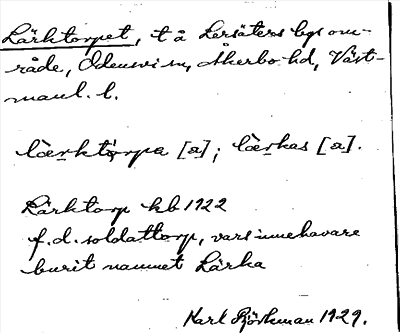 Lärktorpet, t å Lersäters bys om-
råde, Odensvi sn, Åkerbo hd, Väst-
manl. l.
lærktorpa [a]; lærkas [a].
Lärktorp kb 1922
f.d. soldattorp, vars innehavare
burit namnet Lärka
Karl Björkman 1929.